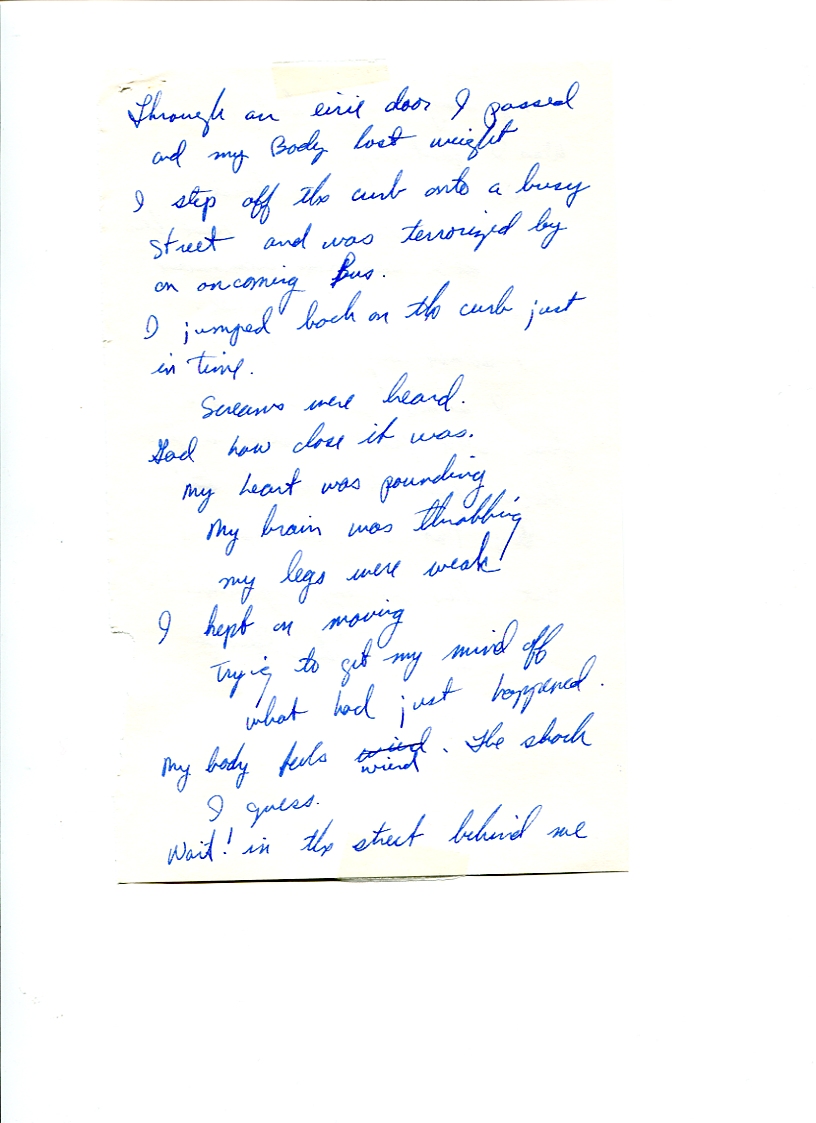 Through an eirie door I passed
and my Body lost weight
I step off the curb onto a busy
street and was terrorized by
an oncoming Bus.
I jumped back on the curb just
in time.
Screams were heard.
God how close it was.
My heart was pounding
My brain was throbbing
my legs were weak!
I kept on moving
Trying to get my mind off
what had just happened.
My body feels wierd. The shock
wierd
I guess.
Wait! in the street behind me